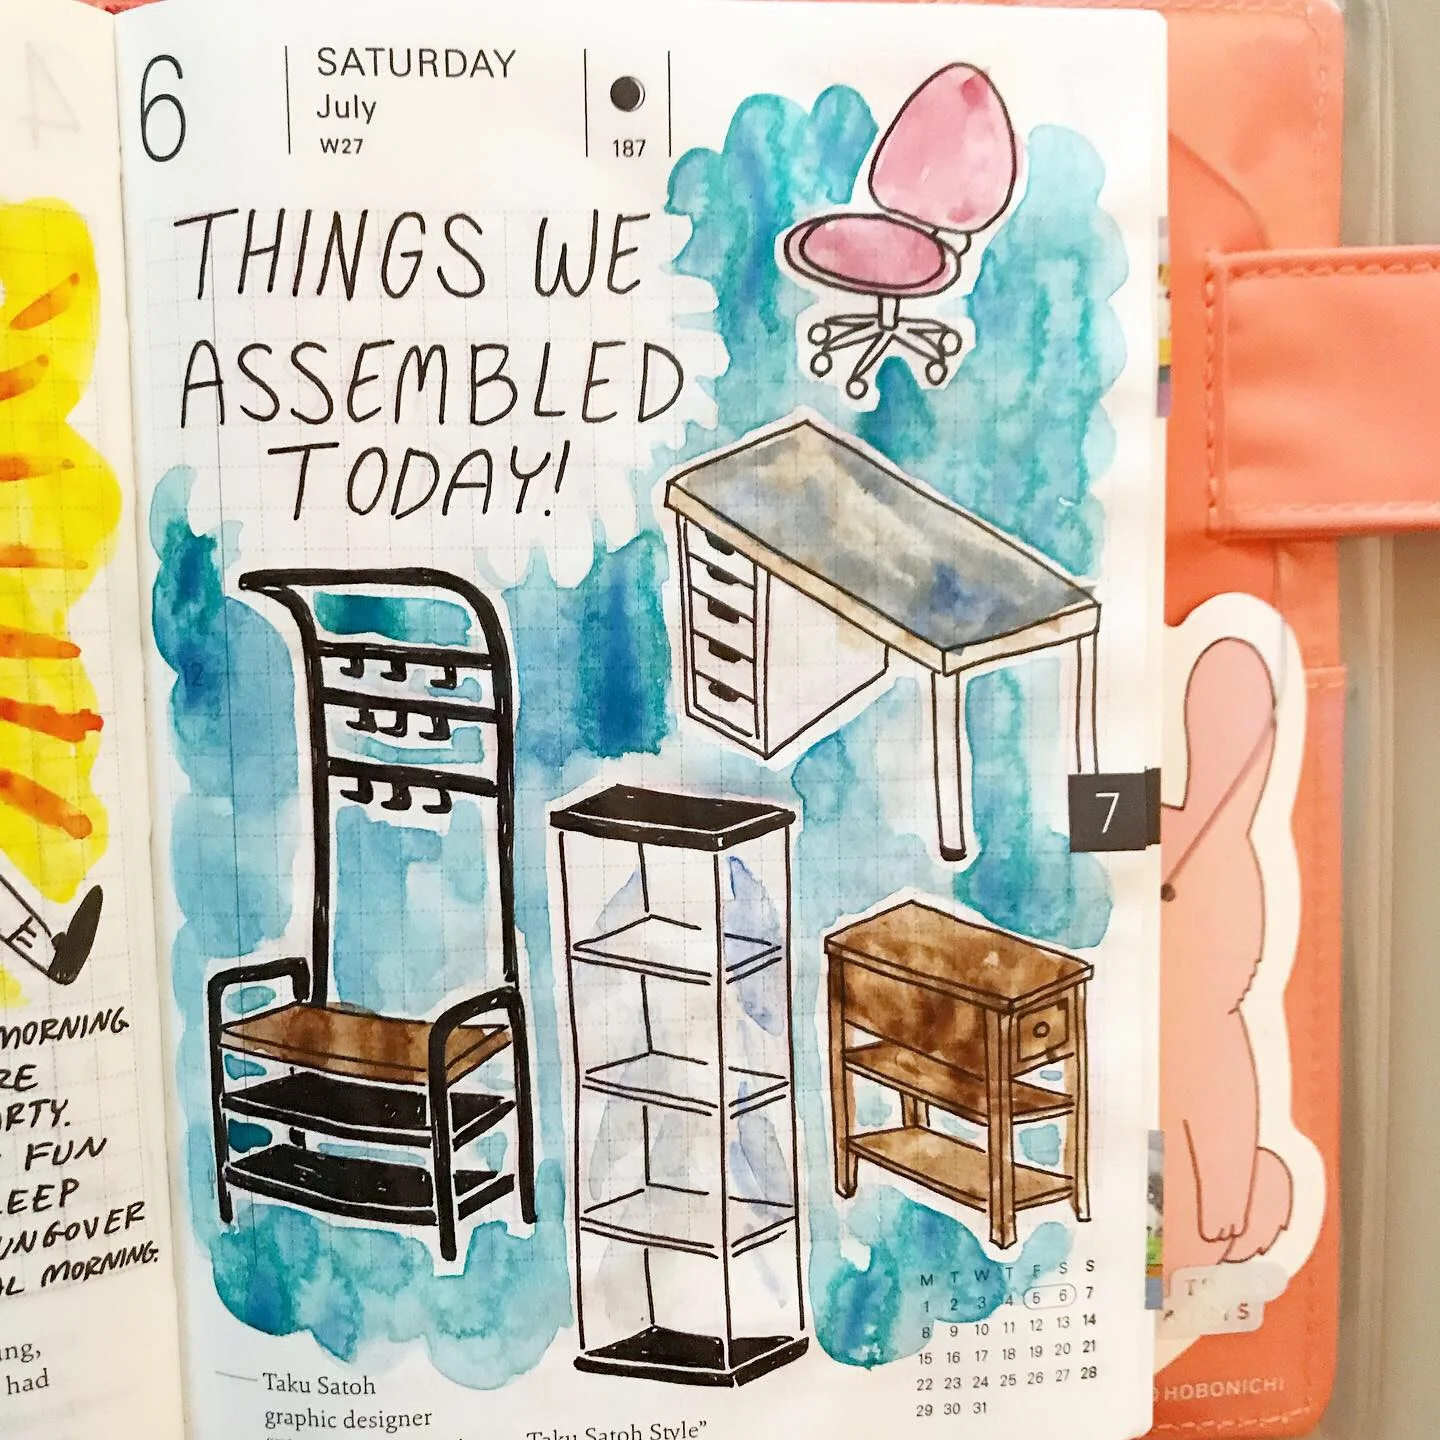 6
SATURDAY
July
W27
187
THINGS WE
ASSEMBLED
TODAY!
7
M T W T F S S
1 2 3 4 5 6 7
8 9 10 11 12 13 14
15 16 17 18 19 20 21
22 23 24 25 26 27 28
29 30 31
Taku Satoh
graphic designer
Taku Satoh Style”
MORNING
FUN
MORNING.
had
HOBONICHI